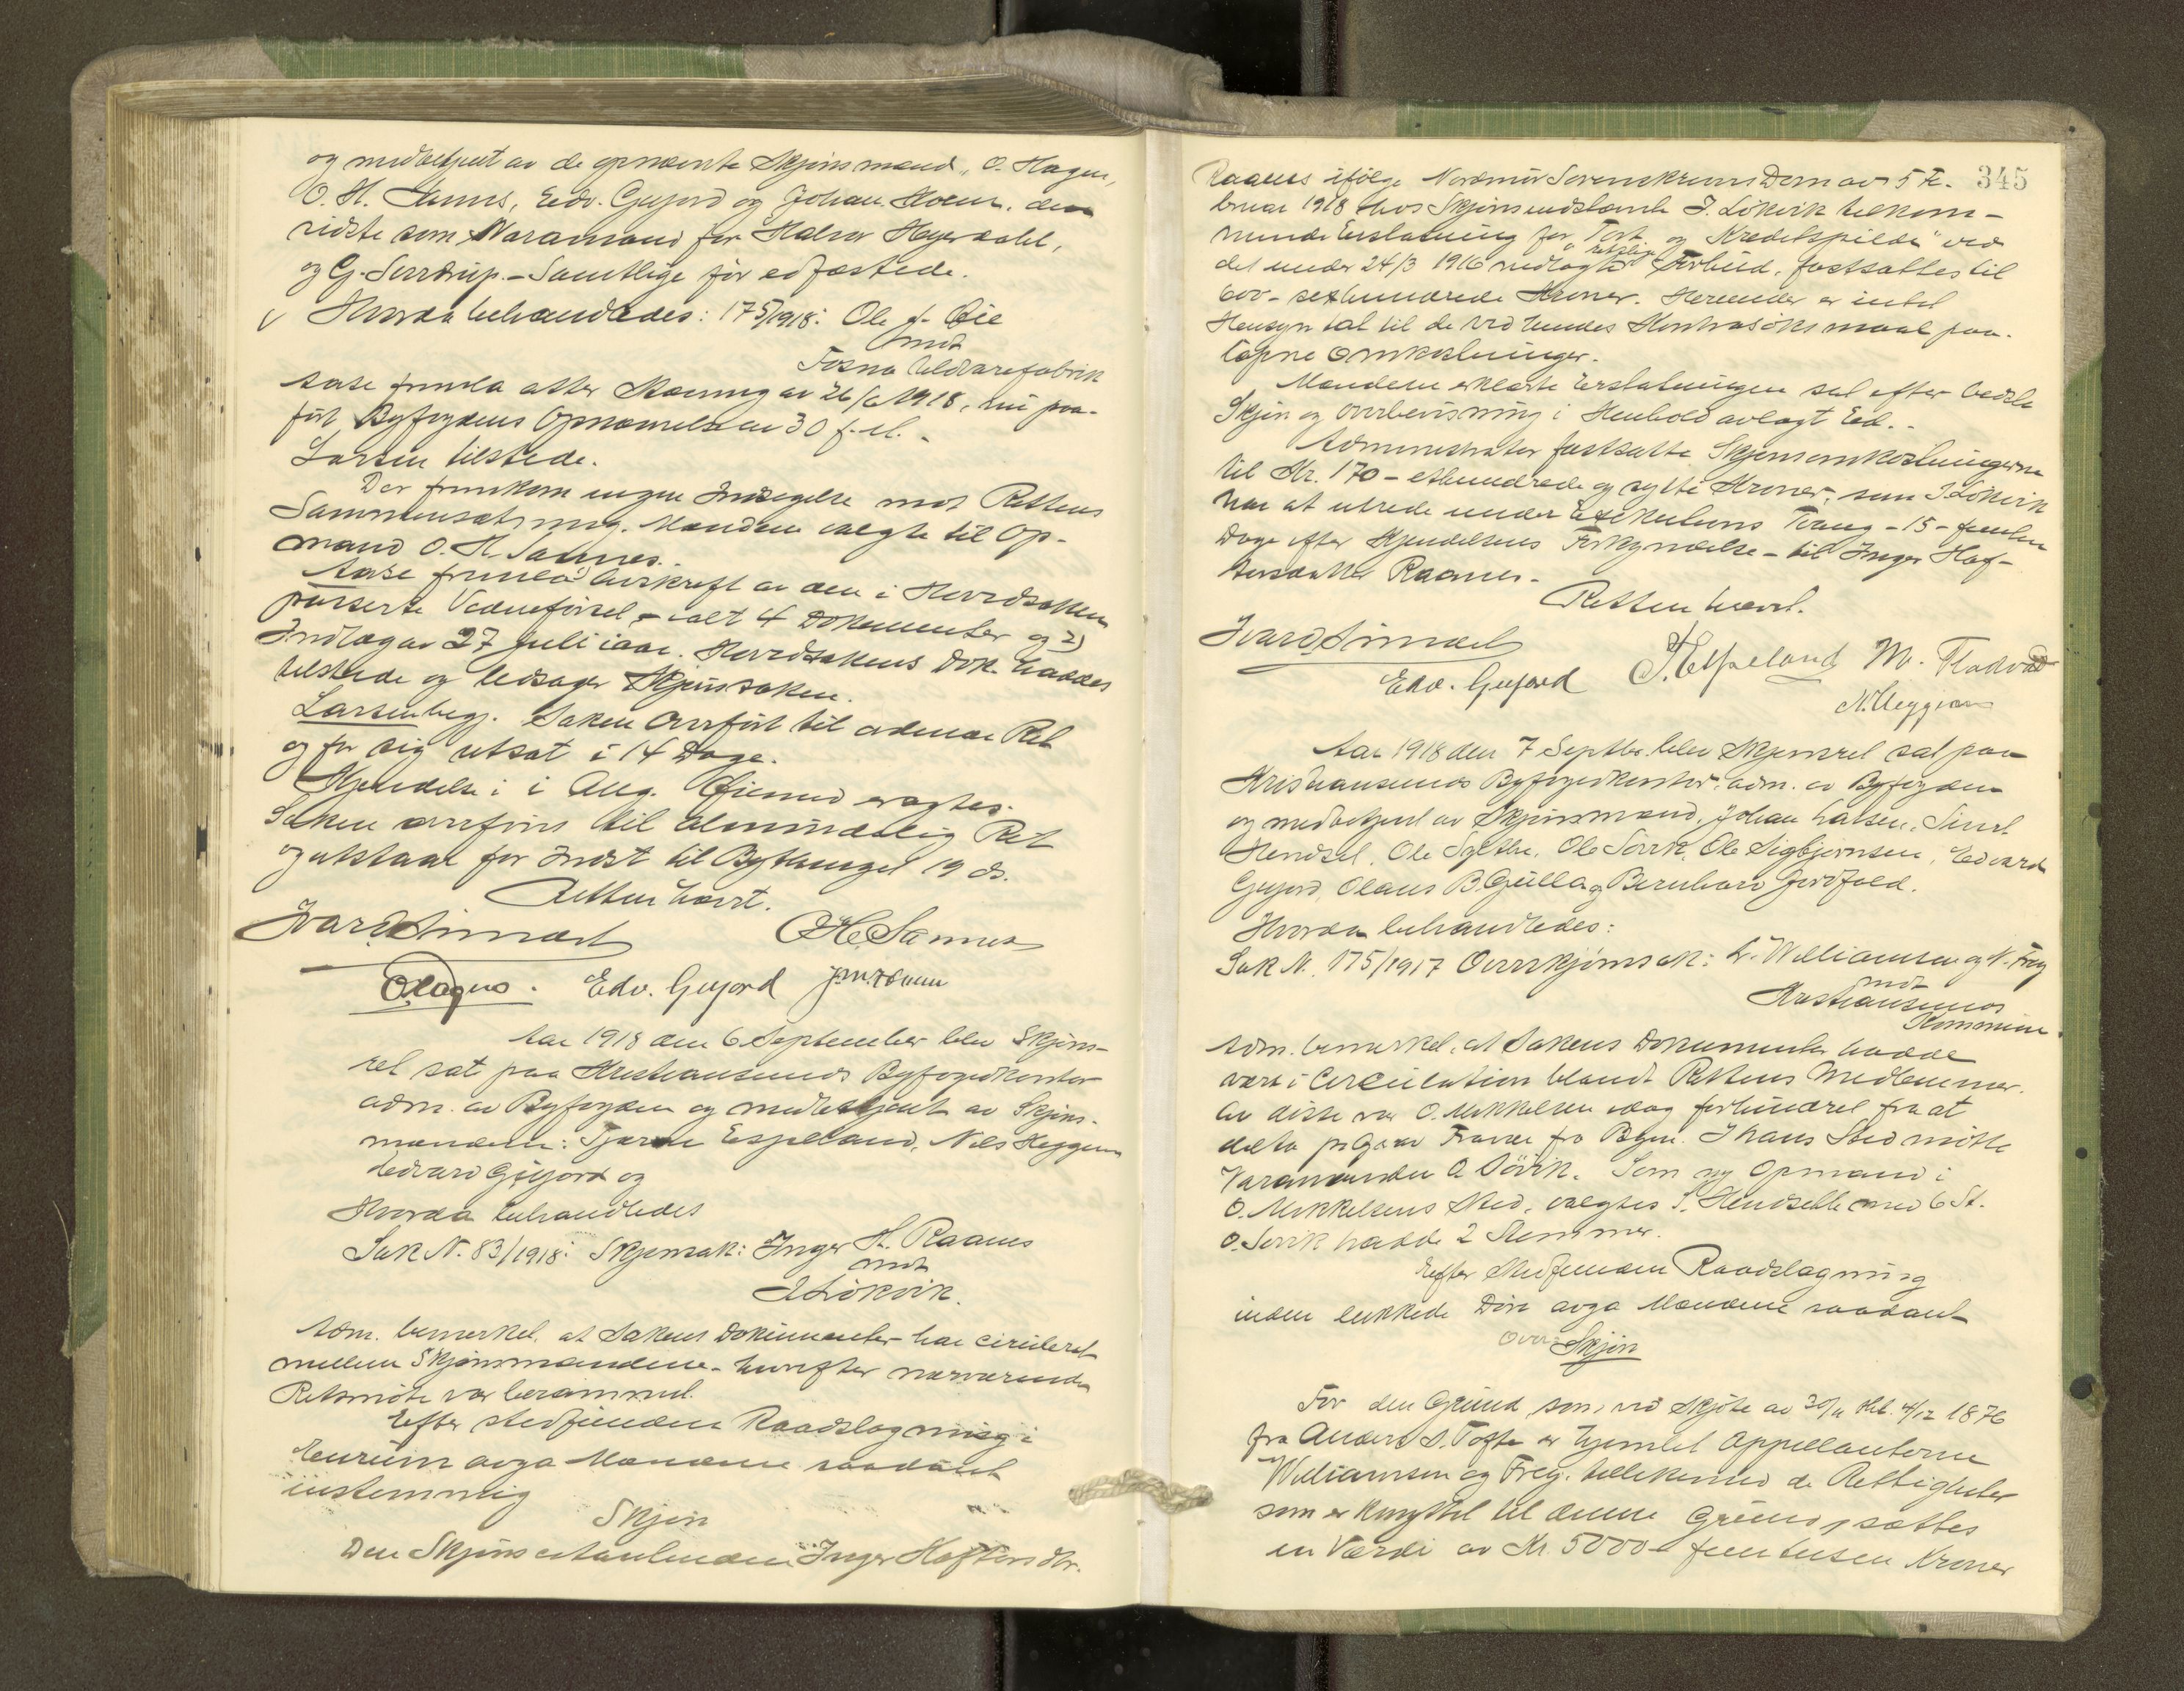 og medbetjent av de opnævnte Skjønsmænd, O. Hagen,
O. H. Sannes, Edv. Gujord og Johan Hoem, den
sidste som Varamand for Halvor Heyerdahl,
og G. Serrdrup. - Samtlige før edfæstede.
Hvorda behandledes: 175/1918: Ole A. Øie
mot
Fosna Uldvarefabrik
Aase fremla atter Stevning av 26/6 1918, nu paa-
ført Byfogdens Opnævnelse av 30 f. M. -
Larsen tilstede.
Der fremkom ingen Indsigelse mot Rettens
Sammensætning. Mændene valgte til Op-
mand O. H. Sannes.
Aase fremla Utskrift av den i Hovedsaken
passerte Vidneførsel - ialt 4 Dokumenter og 2)
Indlæg av 27 Juli iaar. Hovedsakens Dok. haddes
tilstede og ledsager Skjønsaken.
Larsen begj. Saken overført til ordinær Ret
og for sig utsat i 14 Dage.
Kjendelse: i Aug. Øiemed eragtes:
Saken overføres til Almindelig Ret
og utstaar for Indst til Bythinget 19 ds.
Retten hævet.
O. H. Sannes
O. Hagen. Edv. Gujord Joh. Hoem
Aar 1918 den 6 September blev Skjøns-
ret sat paa Kristiansunds Byfogedkontor
adm. av Byfogden og medbetjent av Skjøns-
mændene: Espeland, Nils Heggem
Edvard Gujord og
Hvorda behandledes
Sak N. 83/1918: Skjønsak: Inger H. Raanes
mot
J. Lökvik.
Adm. bemerket, at Sakens Dokumenter har cirkuleret
mellem Skjønsmændene - hvorefter nærværende
Retsmøte var berammet.
Efter stedfunden Raadslagning i
Enrum avga Mændene saadant
enstemmig
Skjøn
Den Skjønsutsaalende Inger Haftorsdtr.
345
Raanes ifølge Nordmør Sorenskrivers Dom av 5 Fe-
bruar 1918 hos Skjønsindstevnte J. Lökvik tilkom-
mende Erstatning for "Tort og Kreditspilde" ved
det under 24/3 1916 nedlagte retslige Forbud, fastsattes til
600 - sekshundrede Kroner. Herunder er intet
Hensyn tat til de ved hendes Kontrasøksmaal paa-
løpne Omkostninger.
Mændene erklærte Erstatningen sat efter bedste
Skjøn og Overbevisning i Henhold avlagt Ed. -
Administrator fastsatte Skjønsomkostningerne
til Kr. 170 - ethundrede og sytti Kroner, som J. Lökvik
har at utrede under Exekutions Tvang - 15 - femten
Dage efter Kjendelsens Forkyndelse - til Inger Haf-
torsdatter Raanes.
Retten hævet.
Edv. Gujord Espeland M. Fladvad
N. Heggem
Aar 1918 den 7 Septbr. blev Skjønsret sat paa
Kristiansunds Byfogedkontor, adm. av Byfogden
og medbetjent av Skjønsmænd, Johan Larsen, Sivert
Hendset, Ole Sylthe, Ole Sørvik, Ole Sigbjørnsen, Edvard
Gujord, Olaus B. Gulla og Bernhard Jordfald.
Hvorda behandledes:
Sak N. 175/1917 Overskjønsak: L. Williamsen og N. Frey
mot
Kristiansunds
Kommune.
Adm. bemerket, at Sakens Dokumenter hadde
vært i Circulation blandt Rettens Medlemmer.
Av disse var O. Mikkelsen idag forhindret fra at
delta pgr av Fravær fra Byen. I hans Sted møtte
Varamanden O. Sörvik. Som ny Opmand i
O. Mikkelsens Sted, valgtes S. Hendseth med 6 St.
O. Sørvik hadde 2 Stemmer.
Efter stedfunden Raadslagning
inden lukkede Døre avga Mændene saadant
Over-Skjøn
For den Grund, som ved Skjøte av 30/11 thl. 4/12 1876
fra Anders S. Tofte er hjemlet Appellanterne
Williamsen og Frey, tillikemed de Rettigheter
som er knyttet til denne Grund, sættes
en Værdi av Kr. 5000 - femtusen Kroner